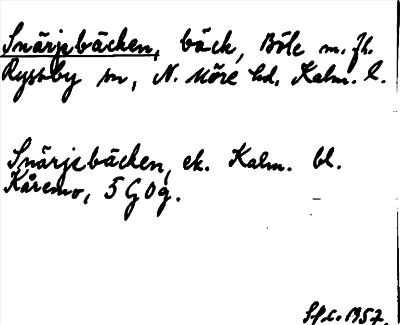 Snärjebäcken, bäck, Böle m. fl.
Ryssby sn, N. Möre hd, Kalm. l.
Snärjebäcken, ek. Kalm. bl.
Kåremo, 5 G 0 g.
1957.